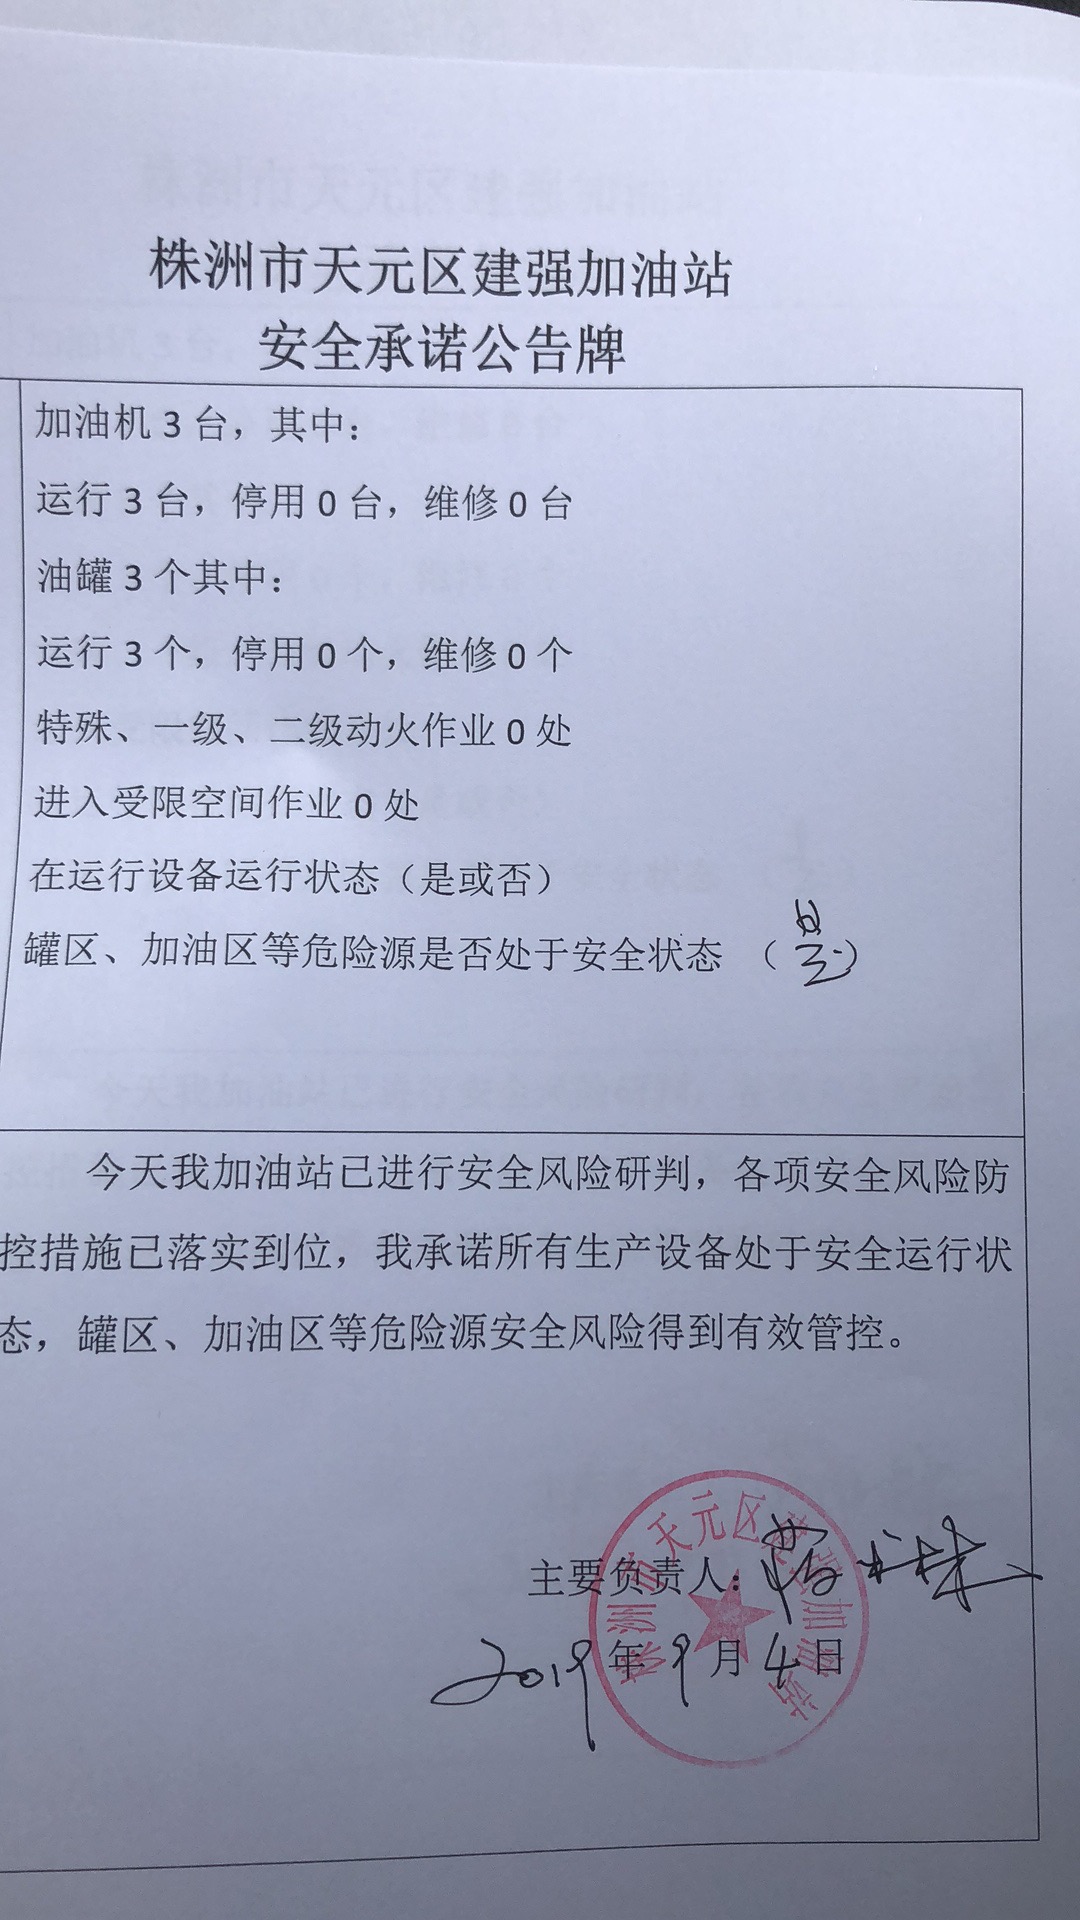 株洲市天元区建强加油站
安全承诺公告牌
加油机 3 台，其中：
运行 3 台，停用 0 台，维修 0 台
油罐 3 个其中：
运行 3 个，停用 0 个，维修 0 个
特殊、一级、二级动火作业 0 处
进入受限空间作业 0 处
在运行设备运行状态（是或否）
罐区、加油区等危险源是否处于安全状态 （是）
今天我加油站已进行安全风险研判，各项安全风险防
控措施已落实到位，我承诺所有生产设备处于安全运行状
态，罐区、加油区等危险源安全风险得到有效管控。
主要负责人：
2019年9月4日
株洲市天元区建强加油站